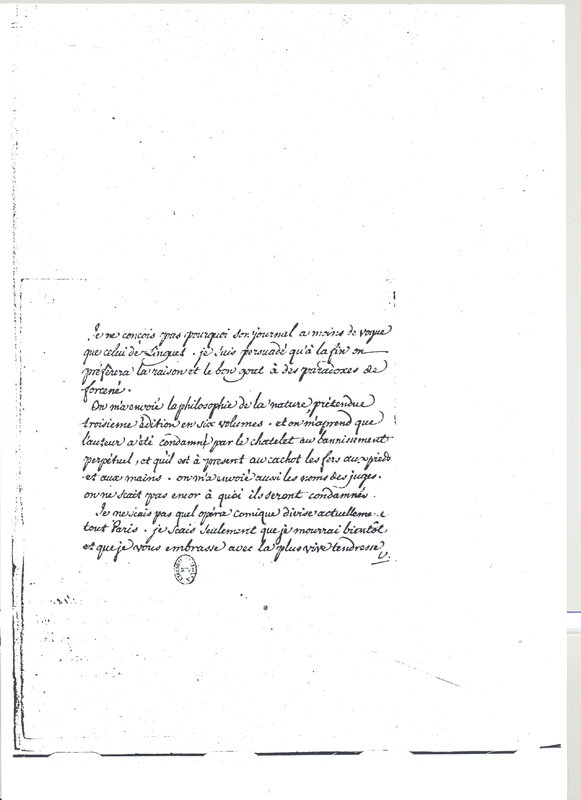 Je ne conçois pas pourquoi son journal a moins de vogue
que celui de Linguet. je suis persuadé qu'à la fin on
préférera la raison et le bon gout à des paradoxes de
forcené.
On m'a envoié la philosophie de la nature, prétendue
troisieme édition en six volumes. et on m'aprend que
l'auteur a été condamné par le chatelet au bannissement
perpétuel, et qu'il est à présent au cachot les fers aux pieds
et aux mains. on m'a envoié aussi les noms des juges.
on ne scait pas encor à quoi ils seront condamnés.
Je ne scais pas quel opéra comique divise actuelleme e
tout Paris. je scais seulement que je mourrai bientôt
et que je vous embrasse avec la plus vive tendresse
V.